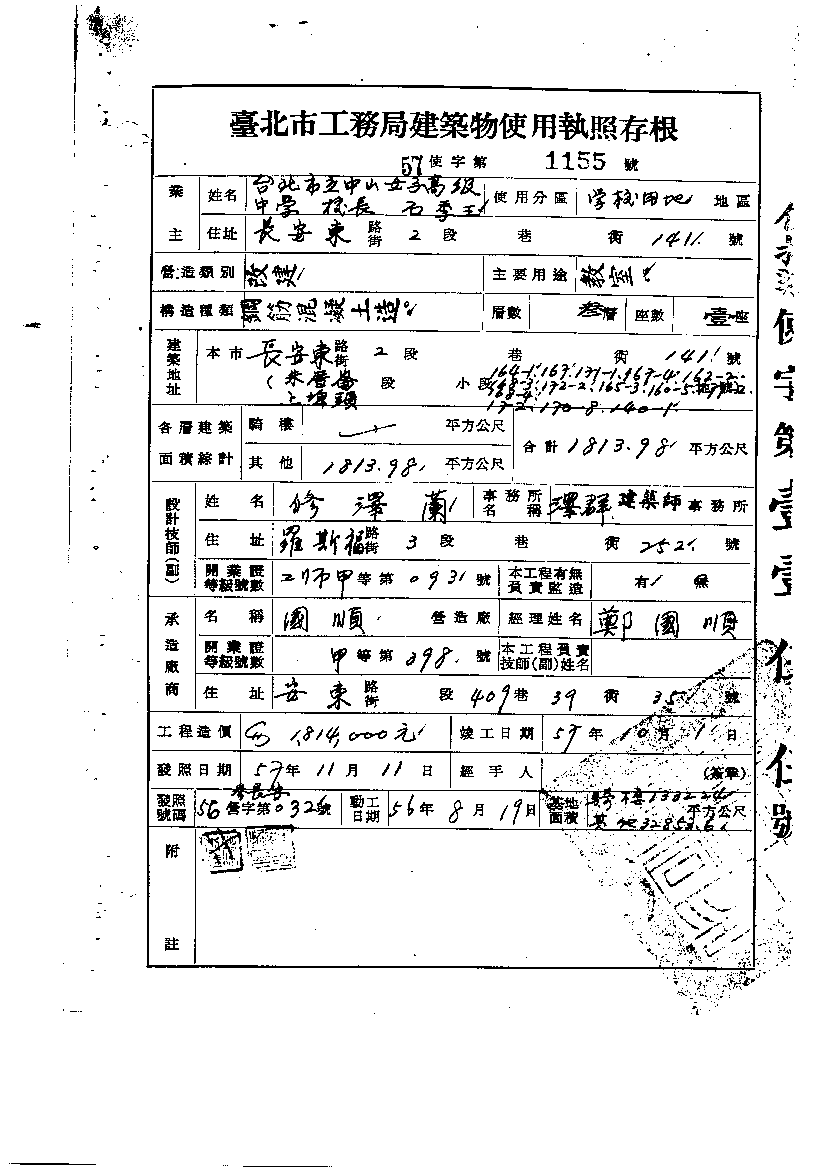 臺北市工務局建築物使用執照存根
57使字第 1155 號
業主 姓名 台北市立中山女子高級中學 校長 石季玉 使用分區 学校用地 地區
住址 長安東 路街 2 段 巷 街 141 號
營造類別 改建 主要用途 教室
構造種類 鋼筋混凝土造 層數 叁層 座數 壹座
建築地址 本市 長安東 路街 2 段 巷 街 141 號
朱厝崙 段 小段
上埤頭
各層建築面積綜計 騎樓 平方公尺 合計 1813.98 平方公尺
其他 1813.98 平方公尺
設計技師(副) 姓名 修澤蘭 事務所名稱 澤群建築師事務所
住址 羅斯福 路街 3 段 巷 街 252 號
開業證等級號數 甲等第 093 號 本工程有無負責監造 有 無
承造廠商 名稱 國順 營造廠 經理姓名 鄭國順
開業證等級號數 甲等第 398 號 本工程負責技師(副)姓名
住址 安東 路街 段 409 巷 39 街 35 號
工程造價 1,814,000元 竣工日期 57年10月1日
發照日期 57年11月11日 經手人 (簽章)
發照號碼 56 營字第0326號 動工日期 56年8月19日 基地面積 騎樓 平方公尺
其他
附註